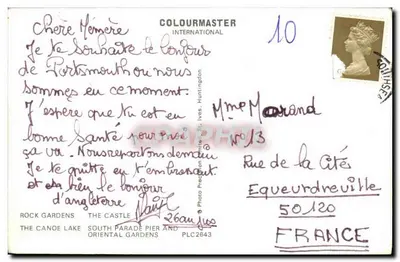 COLOURMASTER
INTERNATIONAL
10
Chère Mémère
Je te souhaite le bonjour
de Portsmouth ou nous
sommes en ce moment.
J'espère que tu est en
bonne santé pour moi
ça va. Nous repartons demain
Je te quitte en t'embrassant
et bien le bonjour
d'angleterre
26 an
Mme
N° 13
Rue de la Cités
Equeurdreville
50120
FRANCE
ROCK GARDENS THE CASTLE
THE CANOE LAKE SOUTH PARADE PIER AND
ORIENTAL GARDENS PLC2843